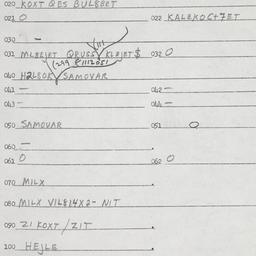 020 KOXT QES BULBBET
021 O 022 KALEXOC+7ET
030 -
(111
031 MLEEJET QRUSS KLEJET$ 032 O
(299 #1112051
040 H2LBOK SAMOVAR
041 - 042 -
043 - 044 -
050 SAMOVAR 051 O
060 -
061 O 062 O
070 MILX
080 MILX VIL814X2- NIT
090 21 KOXT / ZIT
100 HEJLE